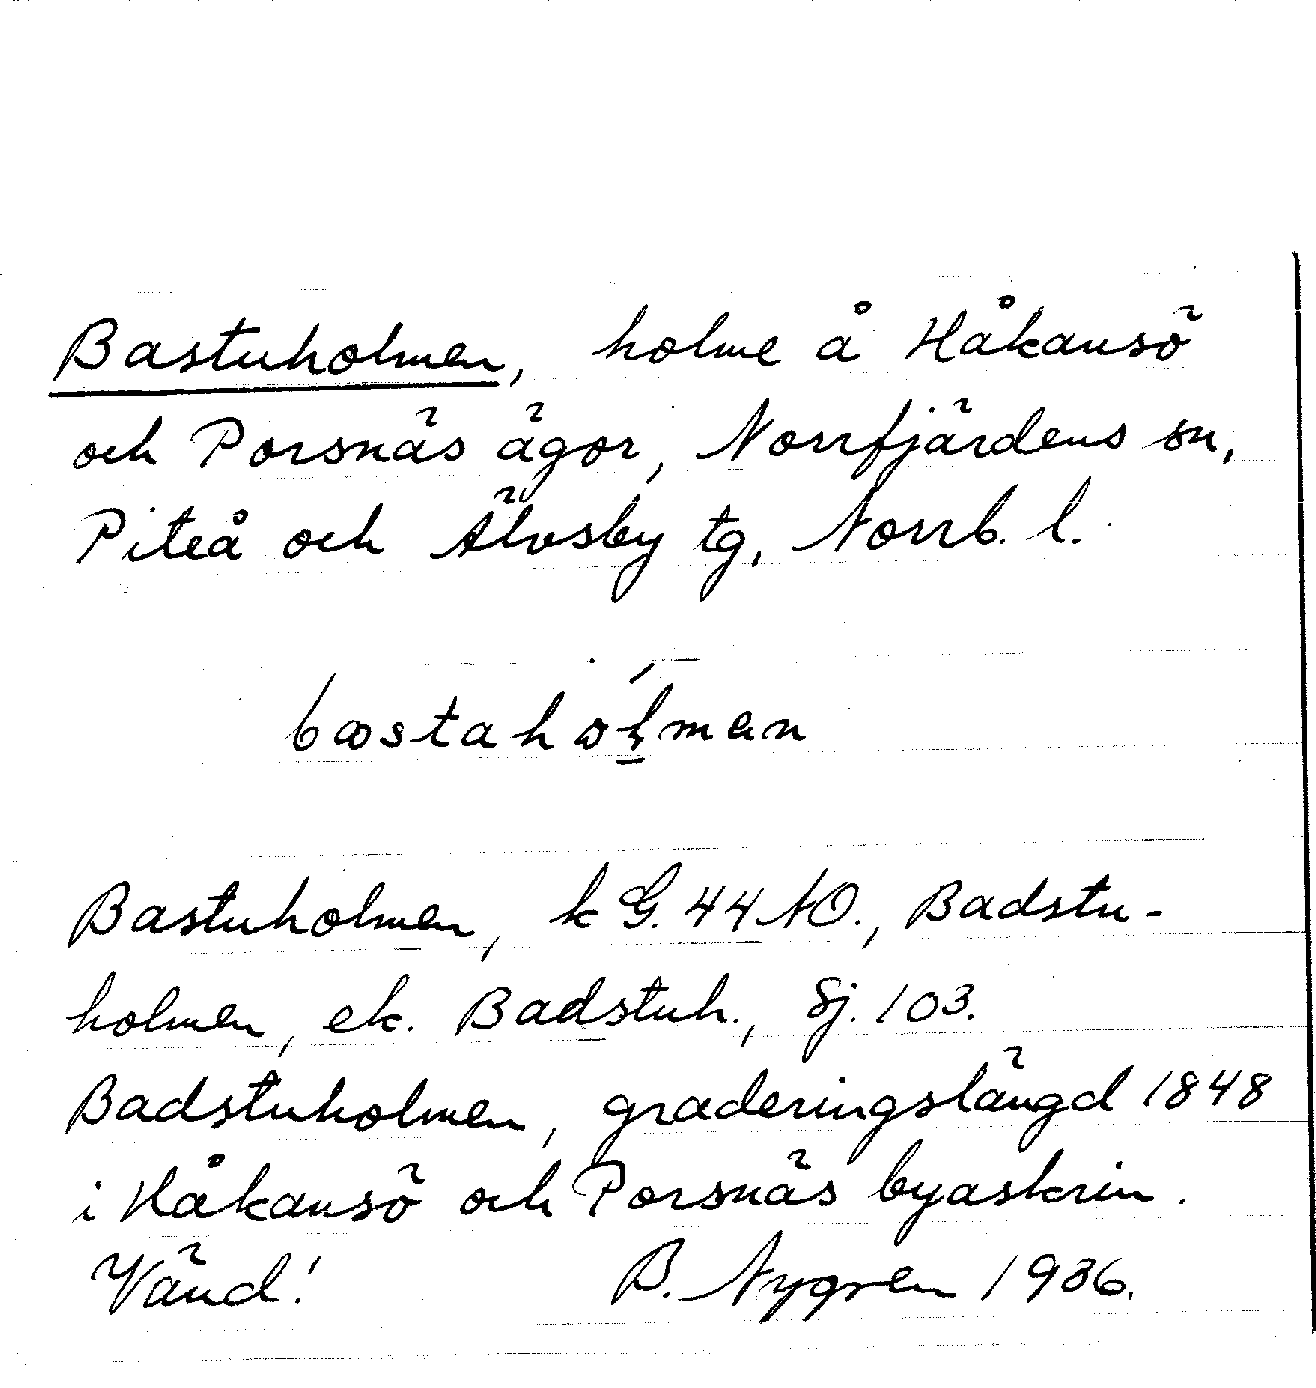 Bastuholmen, holme å Håkansö
och Porsnäs ägor, Norrfjärdens sn,
Piteå och Älvsby tg, Norrb. l.
Bastuholmen, k G. 44 NO., Badstu-
holmen, ek. Badstuh., Sj. 103.
Badstuholmen, graderingslängd 1848
i Håkansö och Porsnäs byaskrin.
Vänd! B. Nygren 1936.